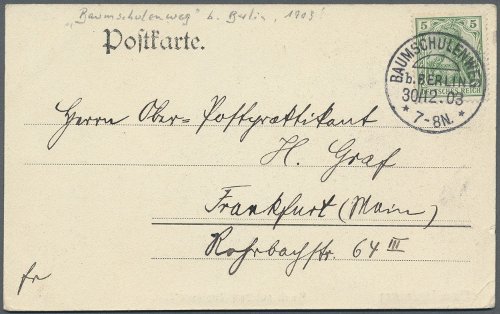 "Baumschulenweg" b. Berlin, 1903!
Postkarte.
5 5
DEUTSCHES REICH
BAUMSCHULENWEG
b. BERLIN
30/12.03
* 7-8N. *
Herrn Ober-Postpraktikant
H. Graf
Frankfurt (Main)
Rohrbachstr. 64 III
fr